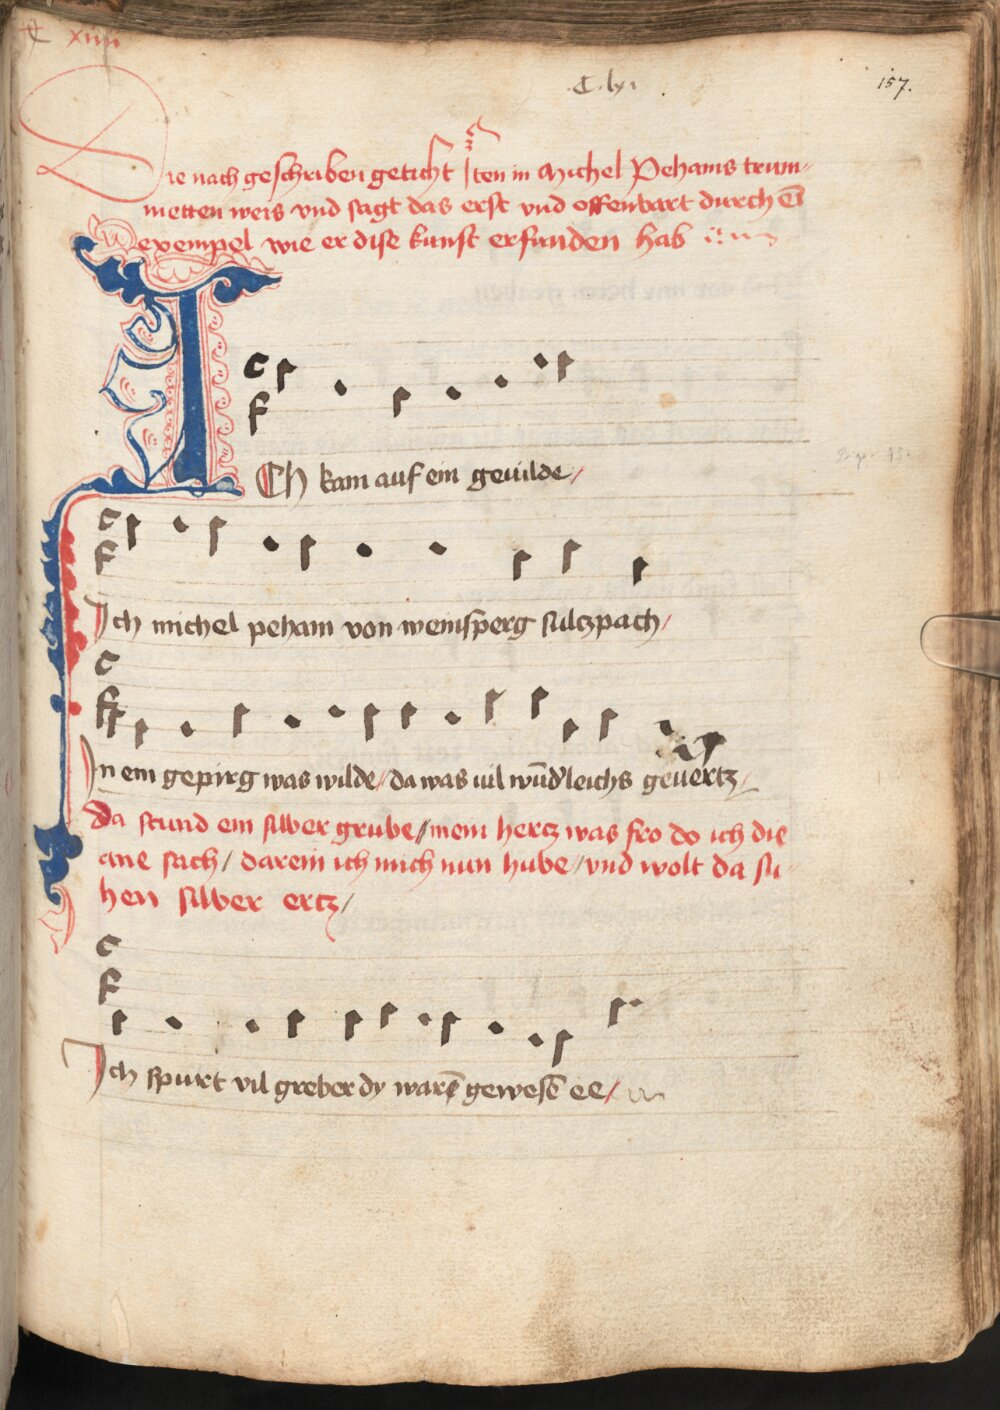 xiiii
C lxi
157.
Die nach geschriben geticht sten in Michel Pehams trum-
metten weis vnd sagt das erst vnd offenbart durch ein
exempel wie er dise kunst erfunden hab
C
F
ICh kam auf ein geuilde /
C
F
Ich michel peham von weinsperg sulczpach /
C
F
In eim gepirg was wilde / da was uil wūd'leichs geuertz /
Da stund ein silber grube // mein hercz was fro do ich die
ane sach / darein ich mich nun hube // vnd wolt da su-
hen silber ertz /
C
F
Ich spurt vil greber dy warē gewesē ee /